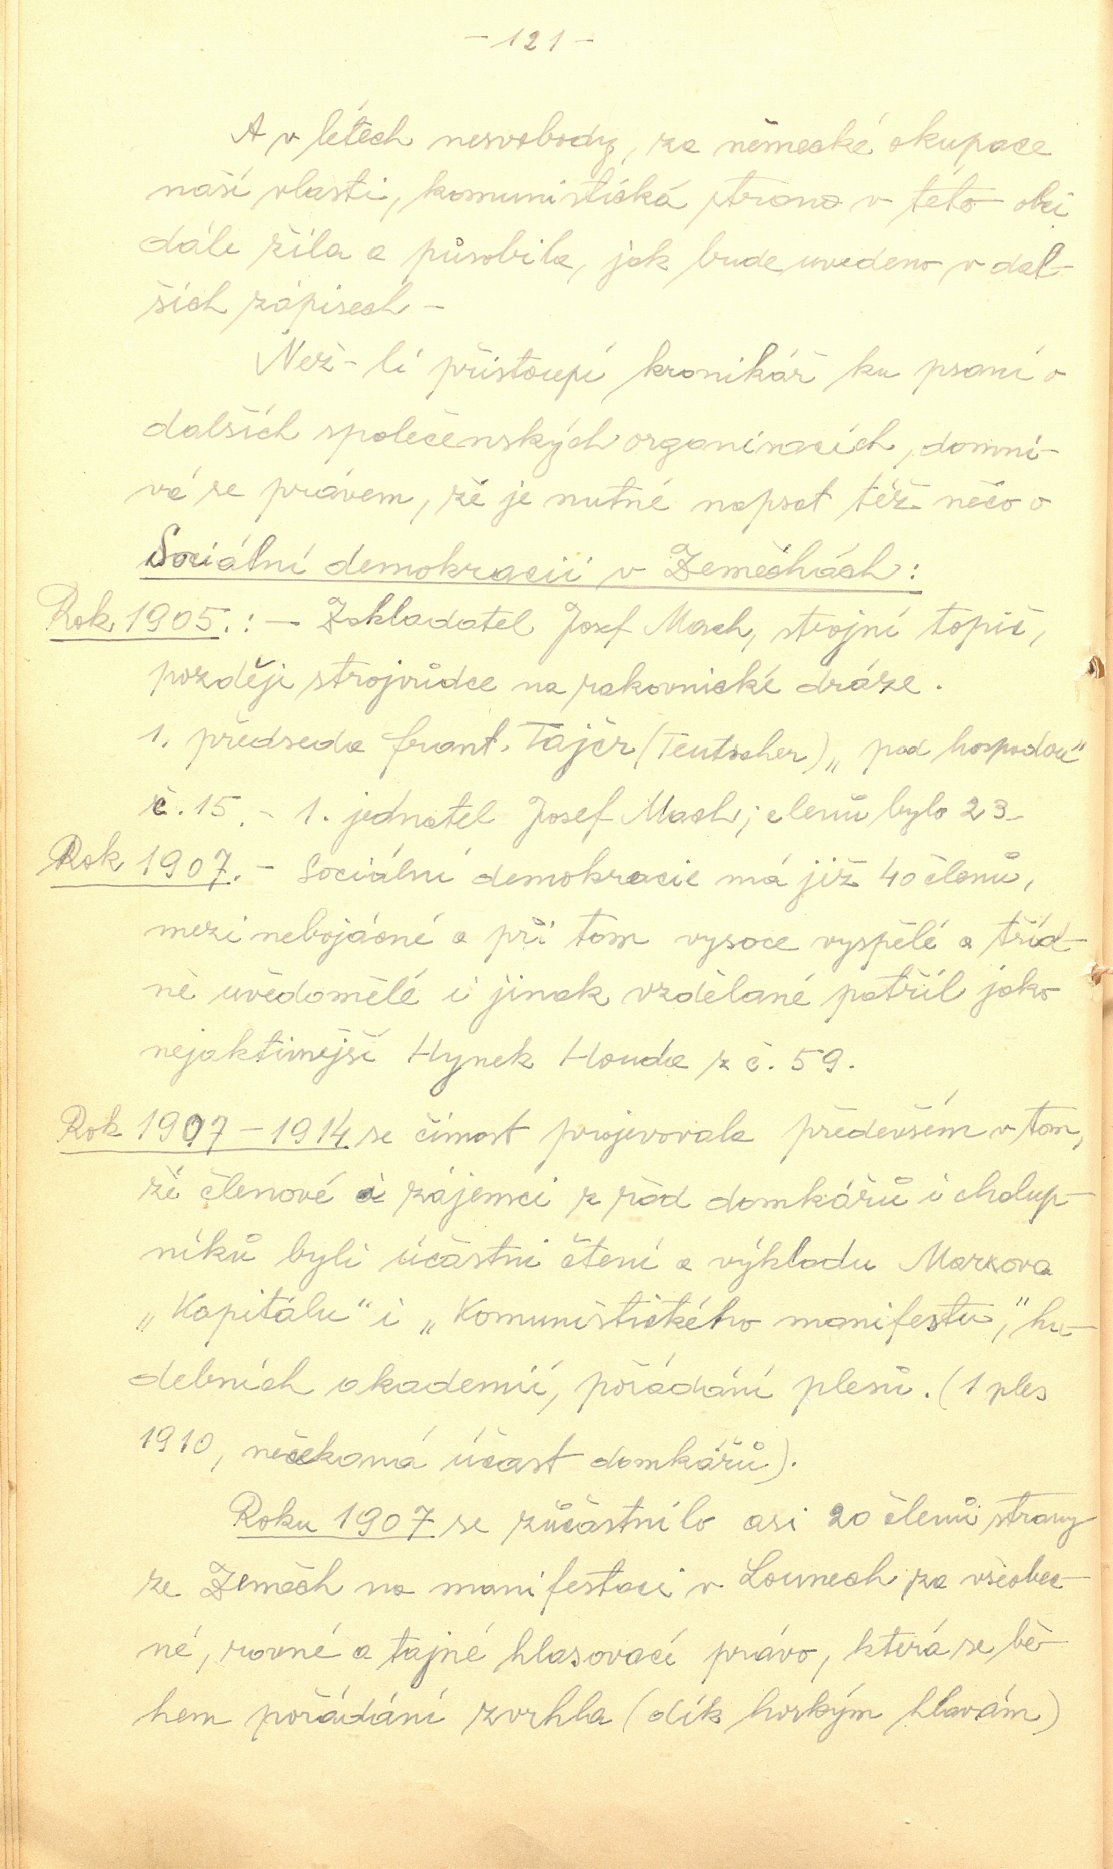 - 121 -
A v létech nesvobody, za německé okupace
naší vlasti, komunistická strana v této obci
dále žila a působila, jak bude uvedeno v dal-
ších zápisech -
Než-li přistoupí kronikář ku psaní o
dalších společenských organisacích, domní-
vá se právem, že je nutné napsat též něco o
Sociální demokracii v Zeměchách:
Rok 1905.: - Zakladatel Josef Mach, strojní topič,
později strojvůdce na rakovnické dráze.
1. předseda frant. Tajčr (Teutscher) „pod hospodou"
č. 15. - 1. jednatel Josef Mach; členů bylo 23
Rok 1907. - Sociální demokracie má již 40 členů,
mezi nebojácné a při tom vysoce vyspělé a tříd-
ně uvědomělé i jinak vzdělané patřil jako
nejaktivnější Hynek Houda z č. 59.
Rok 1907 - 1914 se činnost projevovala především v tom,
že členové i zájemci z řad domkářů i chalup-
níků byli účastni čtení a výkladu Marxova
„Kapitálu" i „Komunistického manifestu", hu-
debních akademií, pořádání plesů. (1 ples
1910, nečekaná účast domkářů).
Roku 1907 se zůčastnilo asi 20 členů strany
ze Zeměch na manifestaci v Lounech za všeobec-
né, rovné a tajné hlasovací právo, která se bě-
hem pořádání zvrhla (dík horkým hlavám)